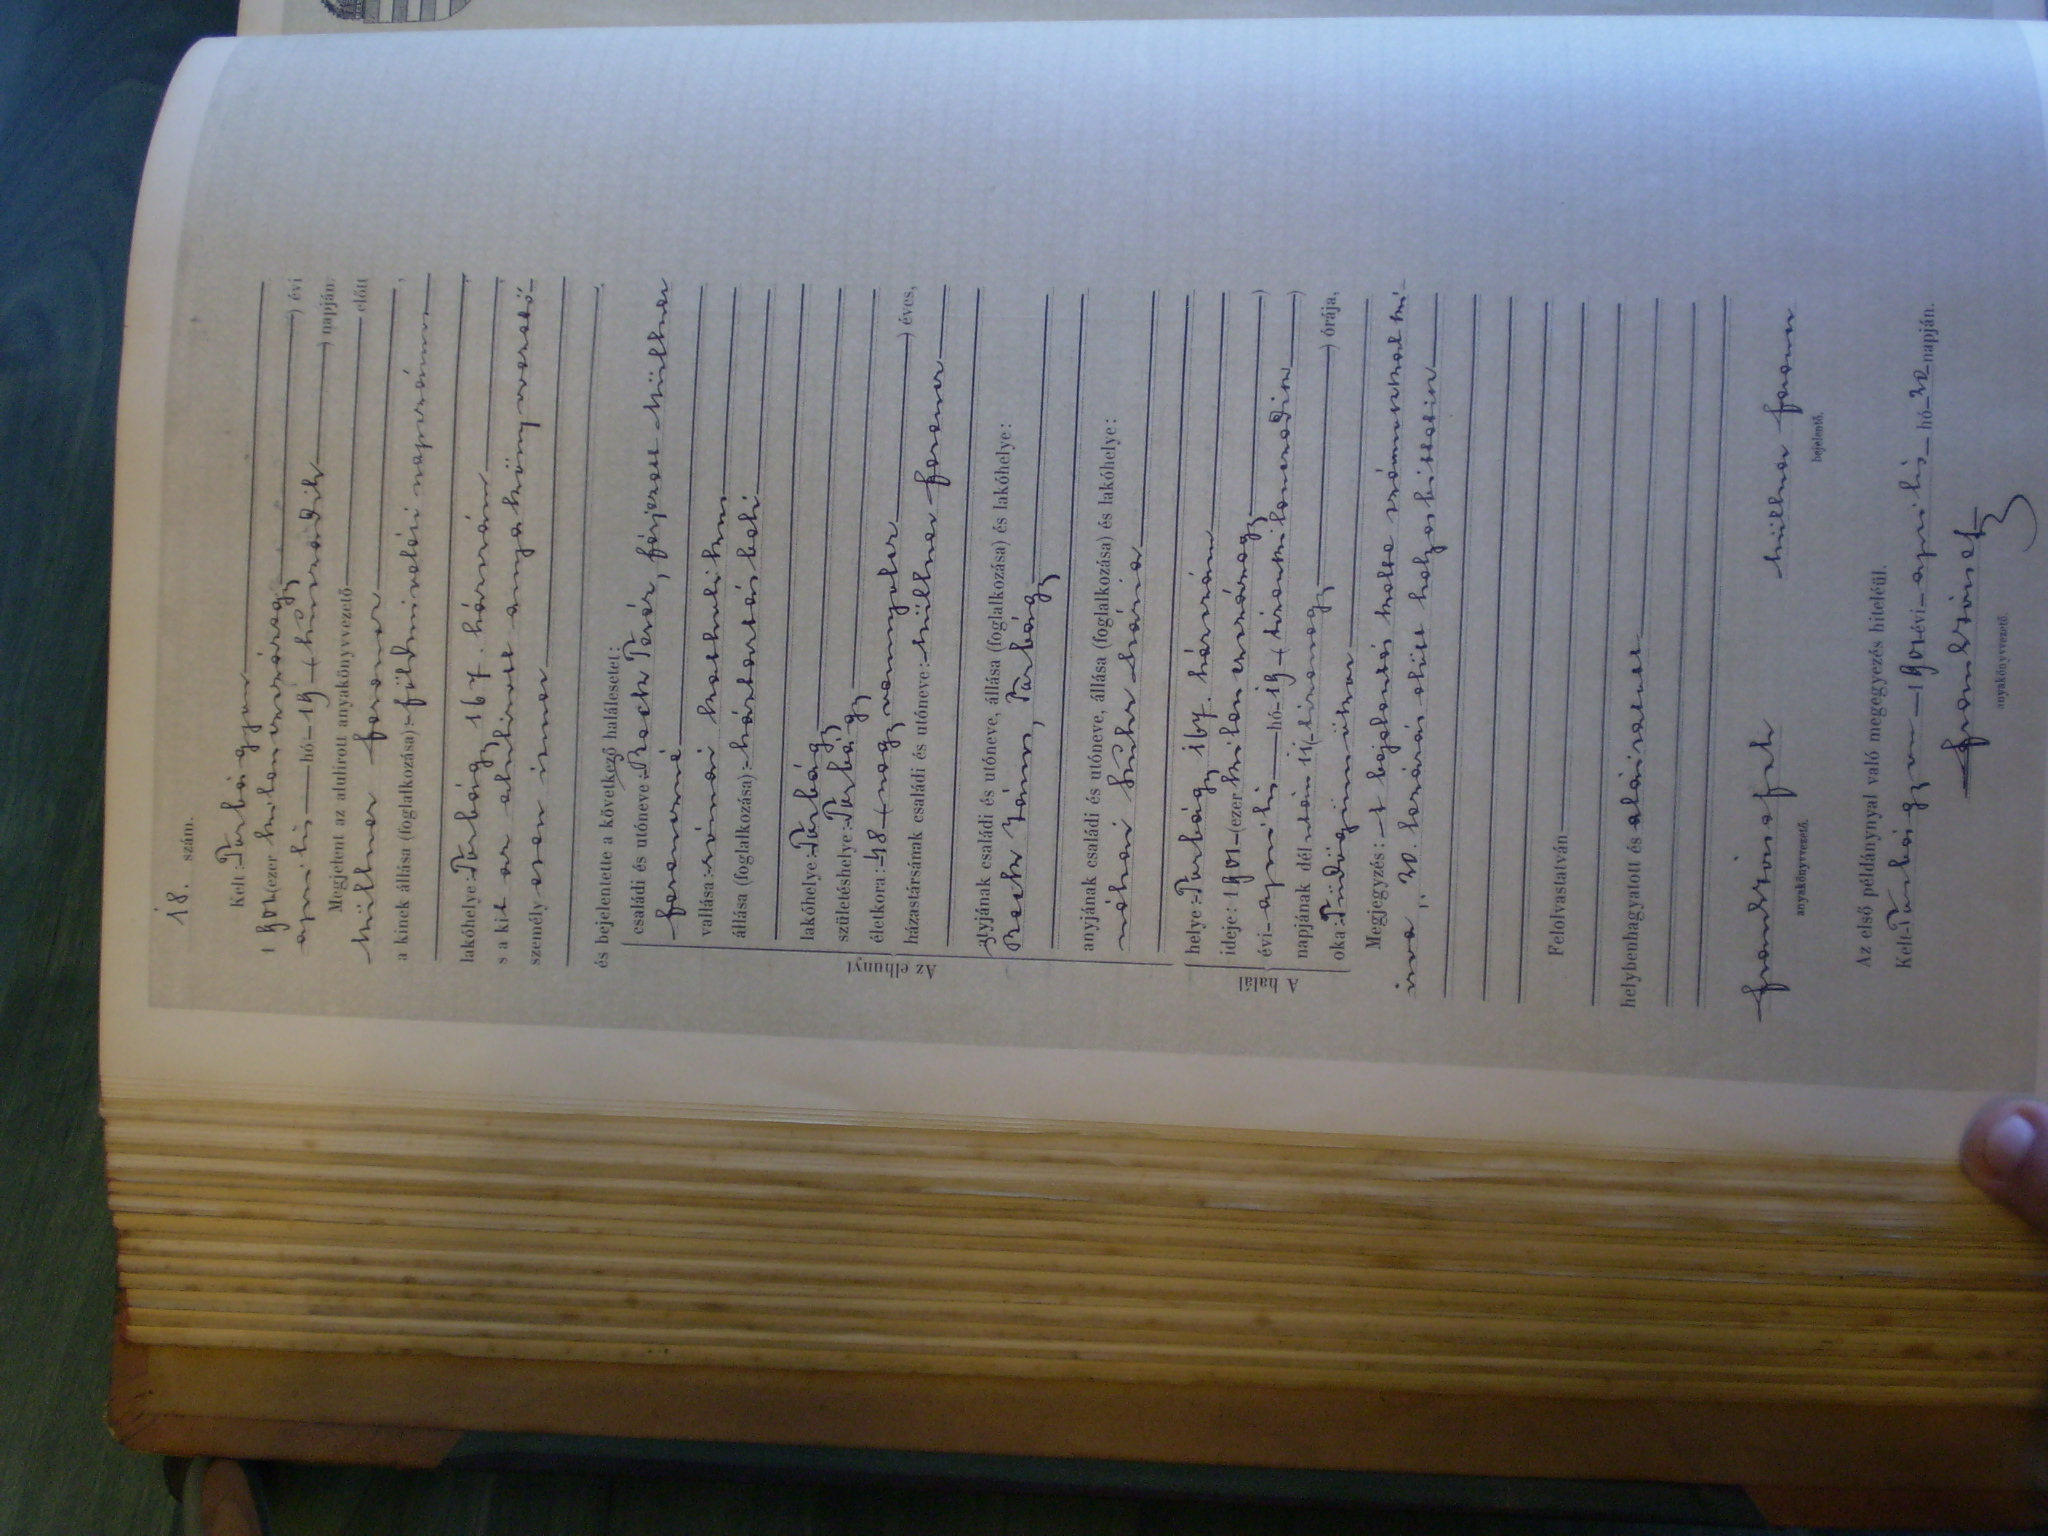 18. szám.
Kelt: Torbágyon
1901 (ezerkilencszázegy) évi
április hó 19 (tizenkilencedik) napján.
Megjelent az alulirott anyakönyvvezető előtt
Müllner Ferencz
a kinek állása (foglalkozása): földmivelési napszámos,
lakóhelye: Torbágy 167. házszám,
s a kit az alulirott anyakönyvvezető
személyesen ismer
és bejelentette a következő halálesetet:
Az elhunyt
családi és utóneve: Teréz, férjezett Müllner
Ferenczné
vallása: római katholikus
állása (foglalkozása): háztartásbeli
lakóhelye: Torbágy
születéshelye: Torbágy
életkora: 48 (negyvennyolcz) éves,
házastársának családi és utóneve: Müllner Ferencz
atyjának családi és utóneve, állása (foglalkozása) és lakóhelye:
János, Torbágy
anyjának családi és utóneve, állása (foglalkozása) és lakóhelye:
néhai Mária
A halál
helye: Torbágy 167. házszám
ideje: 1901 (ezerkilencszázegy)
évi április hó 19 (tizenkilencedik)
napjának dél 11 (tizenegy) órája,
oka: Tüdőgümőkór
Megjegyzés: A bejelentés kelte
20. aláírás előtt helyesbittetik
Felolvastatván
helybenhagyatott és aláíratott
József Müllner Ferencz
anyakönyvvezető. bejelentő.
Az első példánynyal való megegyezés hiteléül.
Kelt Torbágyon 1901 évi április hó 20 napján.
József
anyakönyvvezető.